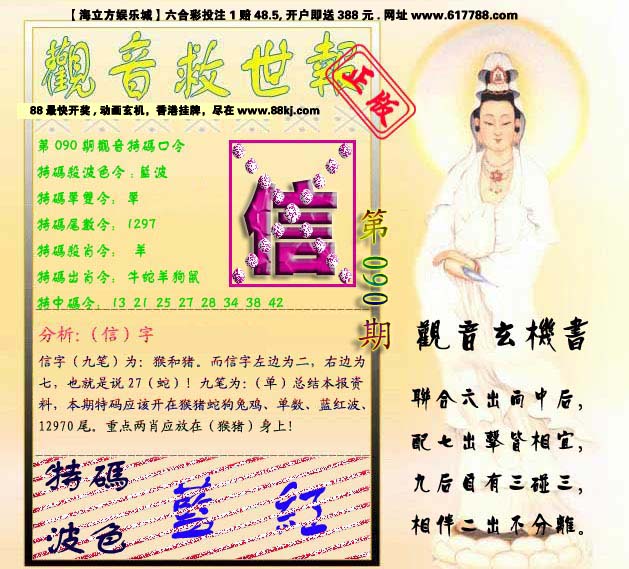 【海立方娱乐城】六合彩投注1赔48.5,开户即送388元,网址 www.617788.com
觀音救世報
正版
88最快开奖,动画玄机,香港挂牌,尽在 www.88kj.com
第090期觀音特碼口令
特碼殺波色令:藍波
特碼單雙令: 單
特碼尾數令: 1297
特碼殺肖令: 羊
特碼出肖令: 牛蛇羊狗鼠
特中碼令: 13 21 25 27 28 34 38 42
信
第090期
分析:(信)字
信字(九笔)为:猴和猪。而信字左边为二,右边为
七,也就是说27(蛇)!九笔为:(单)总结本报资
料,本期特码应该开在猴猪蛇狗兔鸡、单数、蓝红波、
12970尾。重点两肖应放在(猴猪)身上!
特碼
波色
藍 紅
觀音玄機書
聯合六出而中后,
配七出擊皆相宜,
九后目有三碰三,
相伴二出不分離。